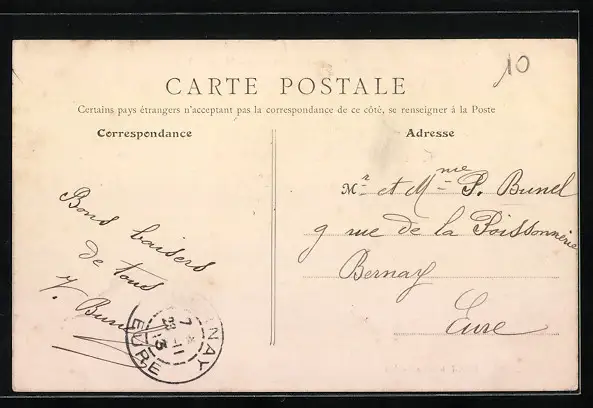 10
CARTE POSTALE
Certains pays étrangers n'acceptant pas la correspondance de ce côté, se renseigner à la Poste
Correspondance
Adresse
Mr et Mme P. Bunel
9 rue de la Poissonnerie
Bernay
Eure
Bons baisers
de tous
V. Bunel
NAY
EURE